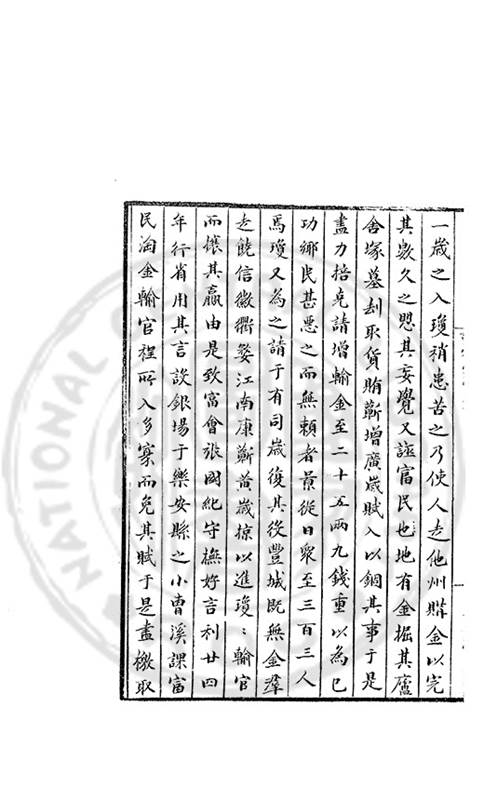 一歲之入瓊稍患苦之乃使人走他州購金以完
其數久之覺其妄覺又誣富民也地有金掘其廬
舍塚墓刦取貨賄蘄增廣歲賦入以錮其事于是
盡力掊克請增輸金至二十五兩九錢重以為已
功鄉民甚惡之而無賴者景從日衆至三百三人
焉瓊又為之請于有司歲復其役豐城既無金羣
走饒信徽衢婺江南康蘄黄歲掠以進瓊〻輸官
而攘其贏由是致富會張國紀守撫好言利廿四
年行省用其言設銀場于樂安縣之小曹溪課富
民淘金輸官裎所入多寡而免其賦于是盡檄取
NATIONAL